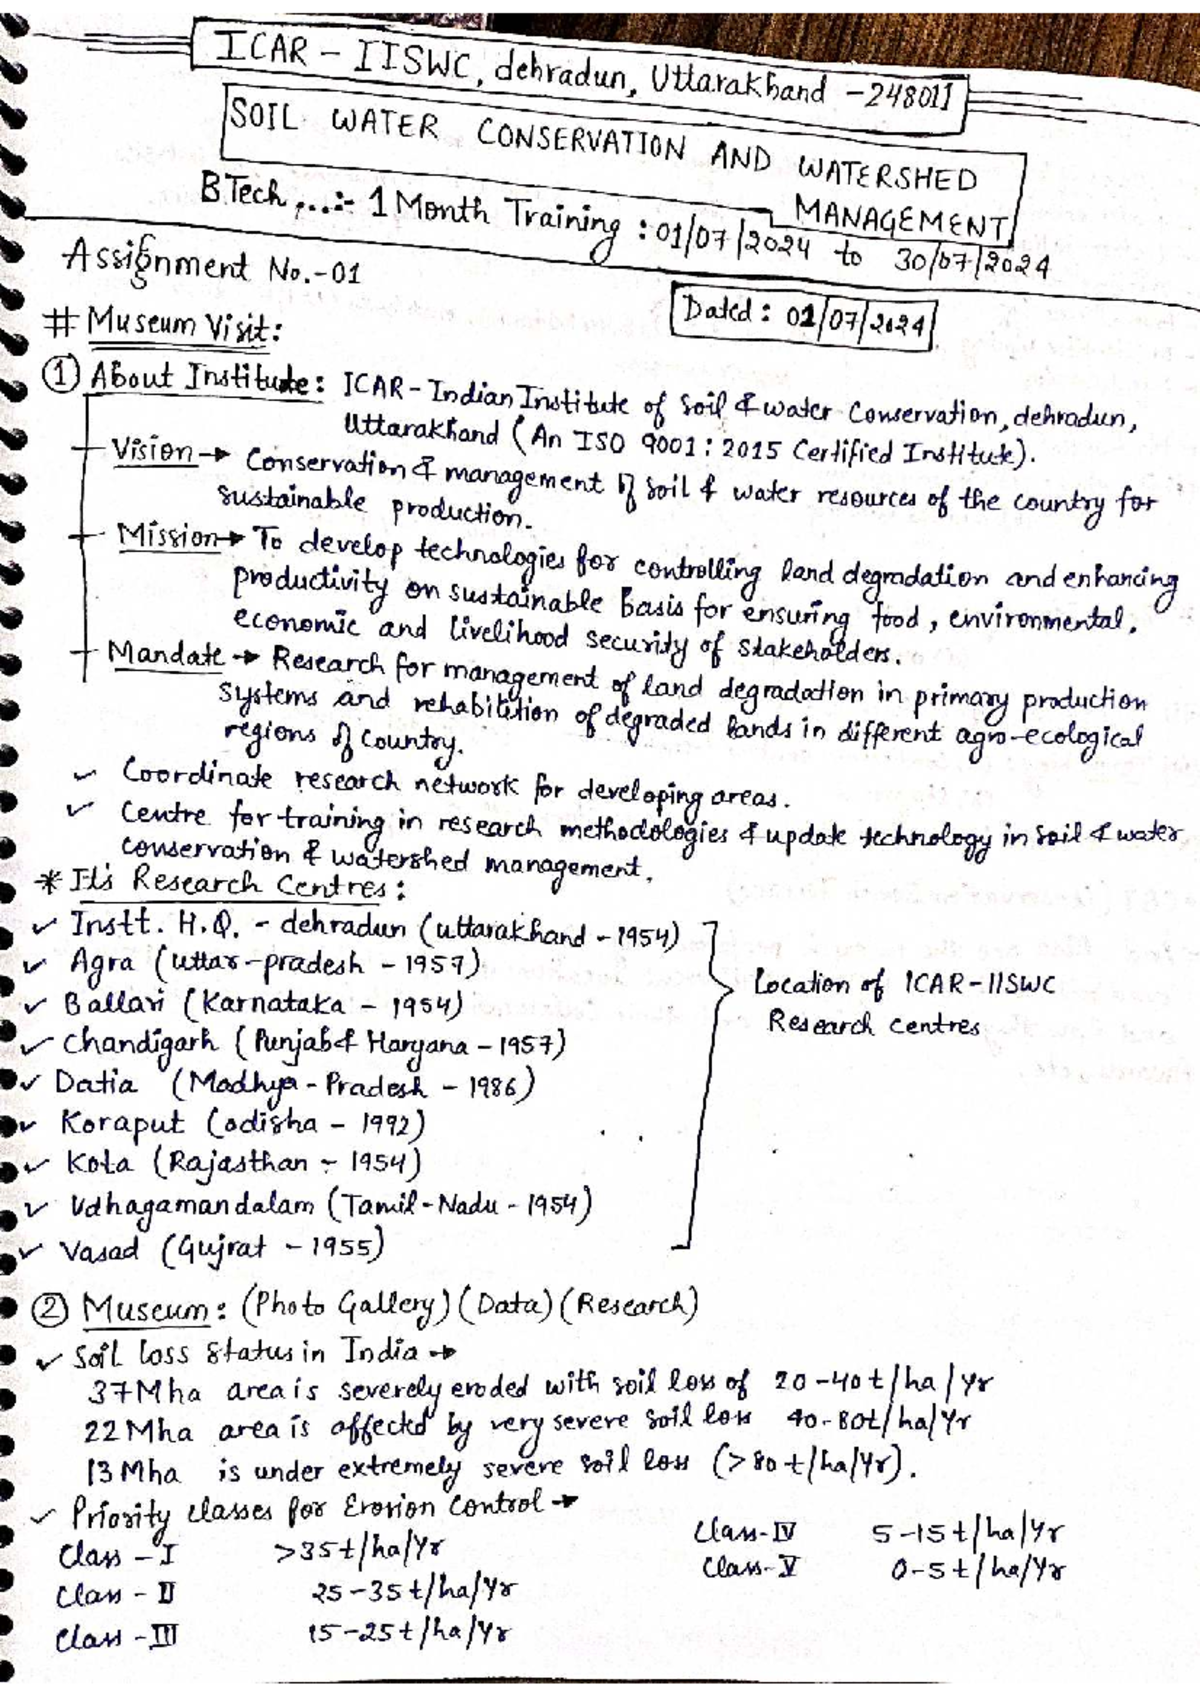 ICAR - IISWC, dehradun, Uttarakhand - 248011
SOIL WATER CONSERVATION AND WATERSHED
MANAGEMENT
B.Tech ,..:- 1 Month Training : 01/07/2024 to 30/07/2024
Assignment No.-01
Dated : 01/07/2024
# Museum Visit:
① About Institute: ICAR-Indian Institute of Soil & water Conservation, dehradun,
Uttarakhand (An ISO 9001:2015 Certified Institute).
Vision → Conservation & management of soil & water resources of the country for
sustainable production.
Mission → To develop technologies for controlling land degradation and enhancing
productivity on sustainable basis for ensuring food, environmental,
economic and livelihood security of stakeholders.
Mandate → Research for management of land degradation in primary production
systems and rehabilition of degraded lands in different agro-ecological
regions of country.
✓ Coordinate research network for developing areas.
✓ Centre for training in research methodologies & update technology in soil & water
conservation & watershed management.
* It's Research Centres:
✓ Instt. H.Q. - dehradun (uttarakhand - 1954)
✓ Agra (uttar-pradesh - 1957)
✓ Ballari (Karnataka - 1954)
✓ Chandigarh (Punjab & Haryana - 1957)
✓ Datia (Madhya-Pradesh - 1986)
✓ Koraput (odisha - 1992)
✓ Kota (Rajasthan - 1954)
✓ Udhagamandalam (Tamil-Nadu - 1954)
✓ Vasad (Gujrat - 1955)
Location of ICAR-IISWC
Research centres
② Museum: (Photo Gallery) (Data) (Research)
✓ Soil loss status in India →
37 Mha area is severely eroded with soil loss of 20-40 t/ha/yr
22 Mha area is affected by very severe soil loss 40-80t/ha/Yr
13 Mha is under extremely severe soil loss (>80 t/ha/Yr).
✓ Priority classes for Erosion Control →
Class - I >35t/ha/Yr
Class - II 25-35 t/ha/Yr
Class - III 15-25t/ha/Yr
Class-IV 5-15t/ha/Yr
Class-V 0-5t/ha/Yr